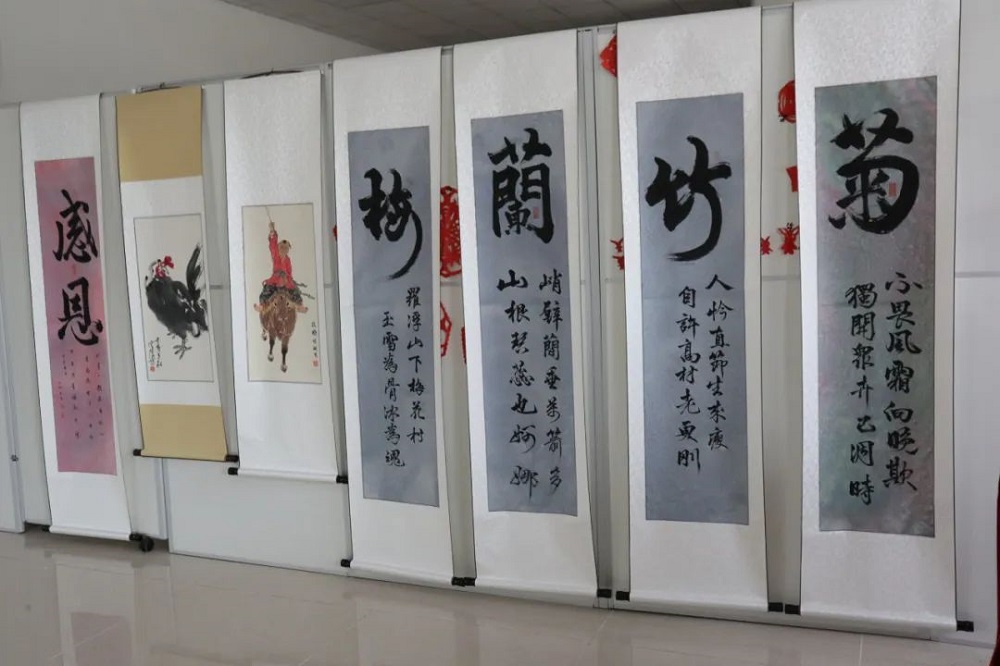 感恩
梅
羅浮山下梅花村
玉雪為骨冰為魂
蘭
峭壁蘭垂萬箭多
山根碧蕊也婀娜
竹
人怜直節生來瘦
自許高材老更刚
菊
不畏風霜向晚欺
獨開衆卉已凋時